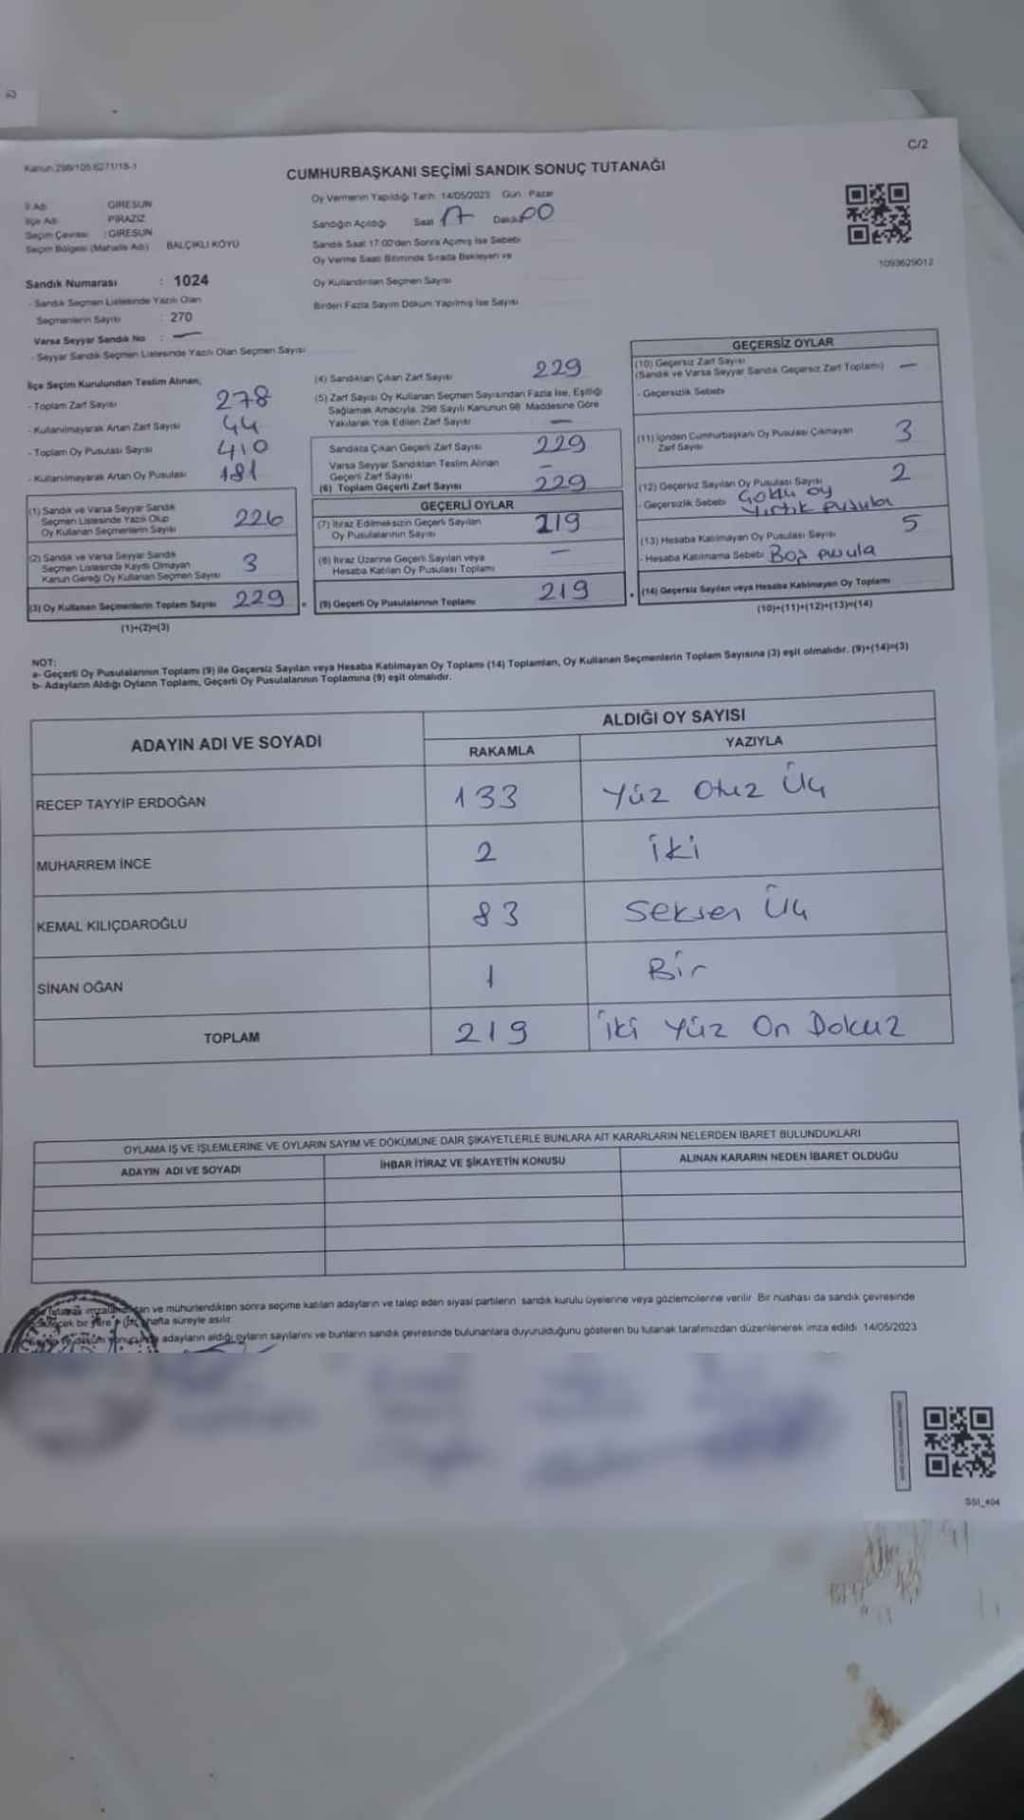 C/2
Kanun 298/105 6271/18-1
CUMHURBAŞKANI SEÇİMİ SANDIK SONUÇ TUTANAĞI
İl Adı GİRESUN
İlçe Adı PİRAZİZ
Seçim Çevresi : GİRESUN
Seçim Bölgesi (Mahalle Adı) BALÇIKLI KÖYÜ
Oy Vermenin Yapıldığı Tarih 14/05/2023 Gün Pazar
Sandığın Açıldığı Saat 17 Dakika 00
Sandık Saat 17.00'den Sonra Açılmış İse Sebebi
Oy Verme Saati Bitiminde Sırada Bekleyen ve
Oy Kullandırılan Seçmen Sayısı
Birden Fazla Sayım Döküm Yapılmış İse Sayısı
1093629012
Sandık Numarası : 1024
- Sandık Seçmen Listesinde Yazılı Olan
Seçmenlerin Sayısı : 270
Varsa Seyyar Sandık No : —
- Seyyar Sandık Seçmen Listesinde Yazılı Olan Seçmen Sayısı
İlçe Seçim Kurulundan Teslim Alınan;
- Toplam Zarf Sayısı 278
- Kullanılmayarak Artan Zarf Sayısı 44
- Toplam Oy Pusulası Sayısı 410
- Kullanılmayarak Artan Oy Pusulası 181
(1) Sandık ve Varsa Seyyar Sandık
Seçmen Listesinde Yazılı Olup
Oy Kullanan Seçmenlerin Sayısı 226
(2) Sandık ve Varsa Seyyar Sandık
Seçmen Listesinde Kayıtlı Olmayan
Kanun Gereği Oy Kullanan Seçmen Sayısı 3
(3) Oy Kullanan Seçmenlerin Toplam Sayısı 229
(1)+(2)=(3)
(4) Sandıktan Çıkan Zarf Sayısı 229
(5) Zarf Sayısı Oy Kullanan Seçmen Sayısından Fazla İse, Eşitliği
Sağlamak Amacıyla, 298 Sayılı Kanunun 98. Maddesine Göre
Yakılarak Yok Edilen Zarf Sayısı —
Sandıkta Çıkan Geçerli Zarf Sayısı 229
Varsa Seyyar Sandıktan Teslim Alınan
Geçerli Zarf Sayısı —
(6) Toplam Geçerli Zarf Sayısı 229
GEÇERLİ OYLAR
(7) İtiraz Edilmeksizin Geçerli Sayılan
Oy Pusulalarının Sayısı 219
(8) İtiraz Üzerine Geçerli Sayılan veya
Hesaba Katılan Oy Pusulası Toplamı —
(9) Geçerli Oy Pusulalarının Toplamı 219
GEÇERSİZ OYLAR
(10) Geçersiz Zarf Sayısı
(Sandık ve Varsa Seyyar Sandık Geçersiz Zarf Toplamı) —
- Geçersizlik Sebebi
(11) İçinden Cumhurbaşkanı Oy Pusulası Çıkmayan
Zarf Sayısı 3
(12) Geçersiz Sayılan Oy Pusulası Sayısı 2
- Geçersizlik Sebebi Çoklu oy
Yırtık pusula
(13) Hesaba Katılmayan Oy Pusulası Sayısı 5
- Hesaba Katılmama Sebebi Boş pusula
(14) Geçersiz Sayılan veya Hesaba Katılmayan Oy Toplamı
(10)+(11)+(12)+(13)=(14)
NOT:
a- Geçerli Oy Pusulalarının Toplamı (9) ile Geçersiz Sayılan veya Hesaba Katılmayan Oy Toplamı (14) Toplamları, Oy Kullanan Seçmenlerin Toplam Sayısına (3) eşit olmalıdır. (9)+(14)=(3)
b- Adayların Aldığı Oyların Toplamı, Geçerli Oy Pusulalarının Toplamına (9) eşit olmalıdır.
ADAYIN ADI VE SOYADI
ALDIĞI OY SAYISI
RAKAMLA YAZIYLA
RECEP TAYYİP ERDOĞAN 133 Yüz Otuz Üç
MUHARREM İNCE 2 İki
KEMAL KILIÇDAROĞLU 83 Seksen Üç
SİNAN OĞAN 1 Bir
TOPLAM 219 İki Yüz On Dokuz
OYLAMA İŞ VE İŞLEMLERİNE VE OYLARIN SAYIM VE DÖKÜMÜNE DAİR ŞİKAYETLERLE BUNLARA AİT KARARLARIN NELERDEN İBARET BULUNDUKLARI
ADAYIN ADI VE SOYADI İHBAR İTİRAZ VE ŞİKAYETİN KONUSU ALINAN KARARIN NEDEN İBARET OLDUĞU
ve mühürlendikten sonra seçime katılan adayların ve talep eden siyasi partilerin sandık kurulu üyelerine veya gözlemcilerine verilir. Bir nüshası da sandık çevresinde
hafta süreyle asılır.
adayların aldığı oyların sayılarını ve bunların sandık çevresinde bulunanlara duyurulduğunu gösteren bu tutanak tarafımızdan düzenlenerek imza edildi. 14/05/2023
SSI_404